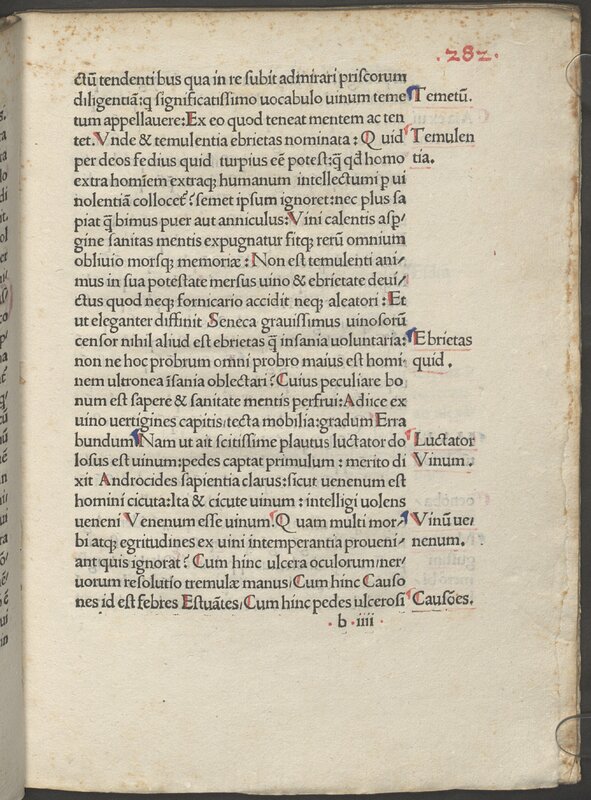 .282.
ctū tendentibus qua in re subit admirari priscorum
diligentiā:q significatissimo uocabulo uinum teme
tum appellauere:Ex eo quod teneat mentem ac ten
tet.Vnde & temulentia ebrietas nominata: Quid
per deos fedius quid turpius eē potest:q̄ qd homo
extra homīem extraq; humanum intellectum ꝑ ui
nolentiā collocet? semet ipsum ignoret:nec plus sa
piat q̄ bimus puer aut anniculus:Vini calentis asp/
gine sanitas mentis expugnatur fitq; rerū omnium
obliuio morsq; memoriæ: Non est temulenti ani/
mus in sua potestate mersus uino & ebrietate deui/
ctus quod neq; fornicario accidit neq; aleatori: Et
ut eleganter diffinit Seneca grauissimus uinosorū
censor nihil aliud est ebrietas q̄ insania uoluntaria:
non ne hoc probrum omni probro maius est homi
nem ultronea īsania oblectari? Cuius peculiare bo
num est sapere & sanitate mentis perfrui:Adiice ex
uino uertigines capitis/tecta mobilia:gradum Erra
bundum Nam ut ait scitissime plautus luctator do
losus est uinum:pedes captat primulum: merito di
xit Androcides sapientia clarus:sicut uenenum est
homini cicuta:Ita & cicute uinum: intelligi uolens
ueneni Venenum esse uinum. Quam multi mor/
bi atq; egritudines ex uini intemperantia proueni/
ant quis ignorat? Cum hinc ulcera oculorum/ner/
uorum resolutio tremulæ manus/Cum hinc Causo
nes id est febres Estuātes/Cum hinc pedes ulcerosi
Temetū.
Temulen
tia.
Ebrietas
quid.
Luctator
Vinum.
Vinū ue/
nenum.
Causōes.
.b.iiii.